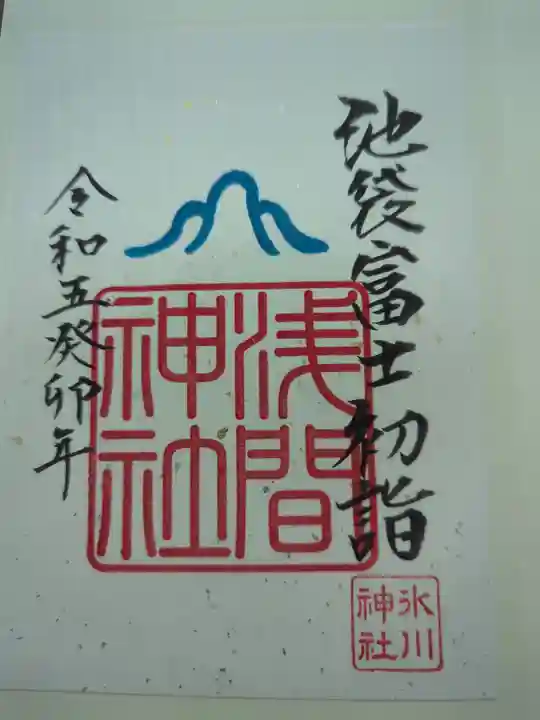 池袋富士初詣
浅間
神社
令和五癸卯年
氷川
神社